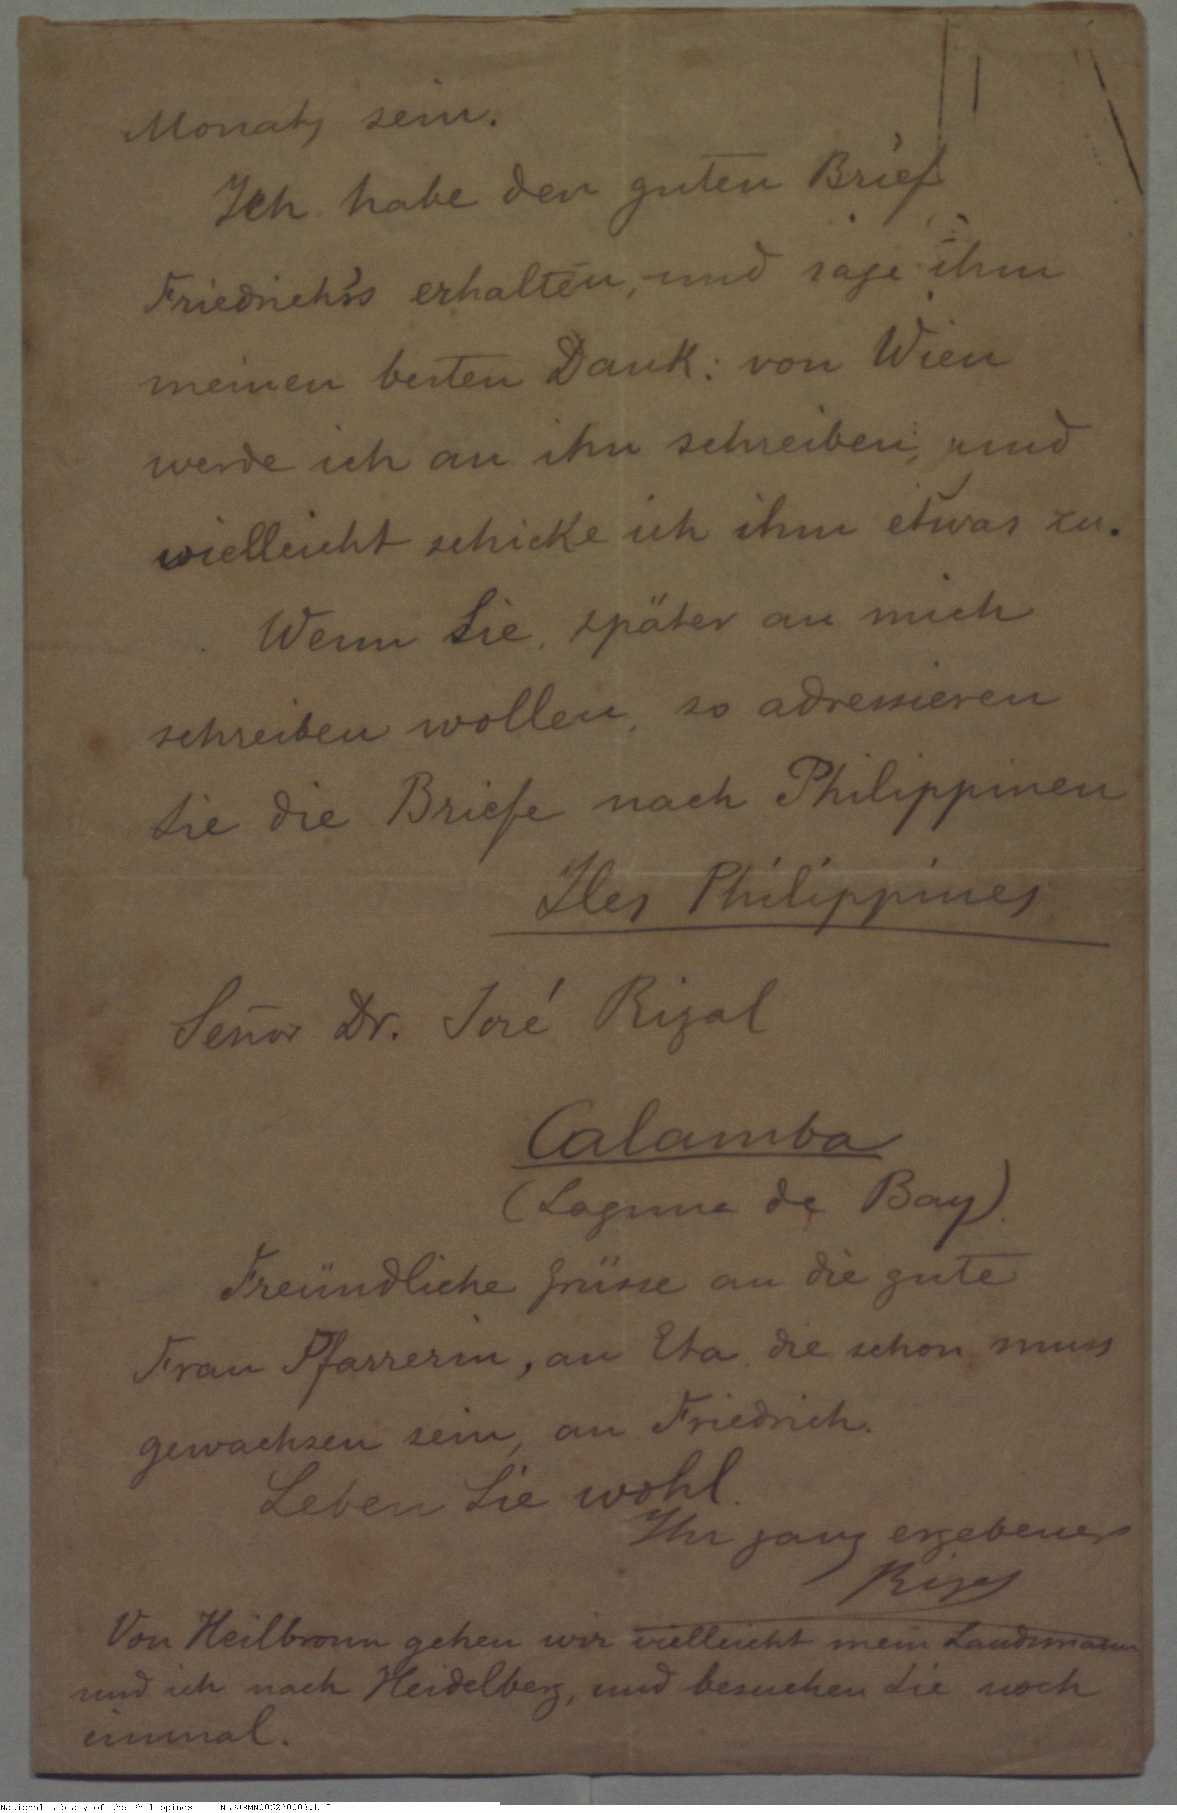 Monats sein.
Ich habe den guten Brief
Friedrichs's erhalten, und sage ihm
meinen besten Dank: von Wien
werde ich an ihn schreiben, und
vielleicht schicke ich ihm etwas zu.
Wenn Sie, später an mich
schreiben wollen, so adressieren
Sie die Briefe nach Philippinen
Iles Philippines
Señor Dr. José Rizal
Calamba
(Laguna de Bay)
Freündliche Grüsse an die gute
Frau Pfarrerin, an Eta die schon muss
gewachsen sein, an Friedrich.
Leben Sie wohl.
Ihr ganz ergebener
Rizal
Von Heilbronn gehen wir vielleicht mein Landsmann
und ich nach Heidelberg, und besuchen Sie noch
einmal.
National Library of the Philippines